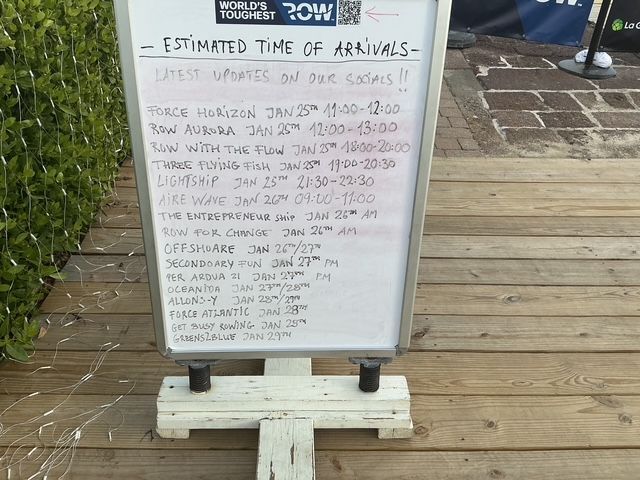 WORLD'S TOUGHEST ROW
- ESTIMATED TIME OF ARRIVALS -
LATEST UPDATES ON OUR SOCIALS !!
FORCE HORIZON JAN 25TH 11:00-12:00
ROW AURORA JAN 25TH 12:00-13:00
ROW WITH THE FLOW JAN 25TH 18:00-20:00
THREE FLYING FISH JAN 25TH 19:00-20:30
LIGHTSHIP JAN 25TH 21:30-22:30
AIRE WAVE JAN 26TH 09:00-11:00
THE ENTREPRENEUR SHIP JAN 26TH AM
ROW FOR CHANGE JAN 26TH AM
OFFSHOARE JAN 26TH/27TH
SECONDOARY FUN JAN 27TH PM
PER ARDUA 21 JAN 27TH PM
OCEANITA JAN 27TH/28TH
ALLONS-Y JAN 28TH/29TH
FORCE ATLANTIC JAN 28TH
GET BUSY ROWING JAN 28TH
GREENS2BLUE JAN 29TH
OW.
La C